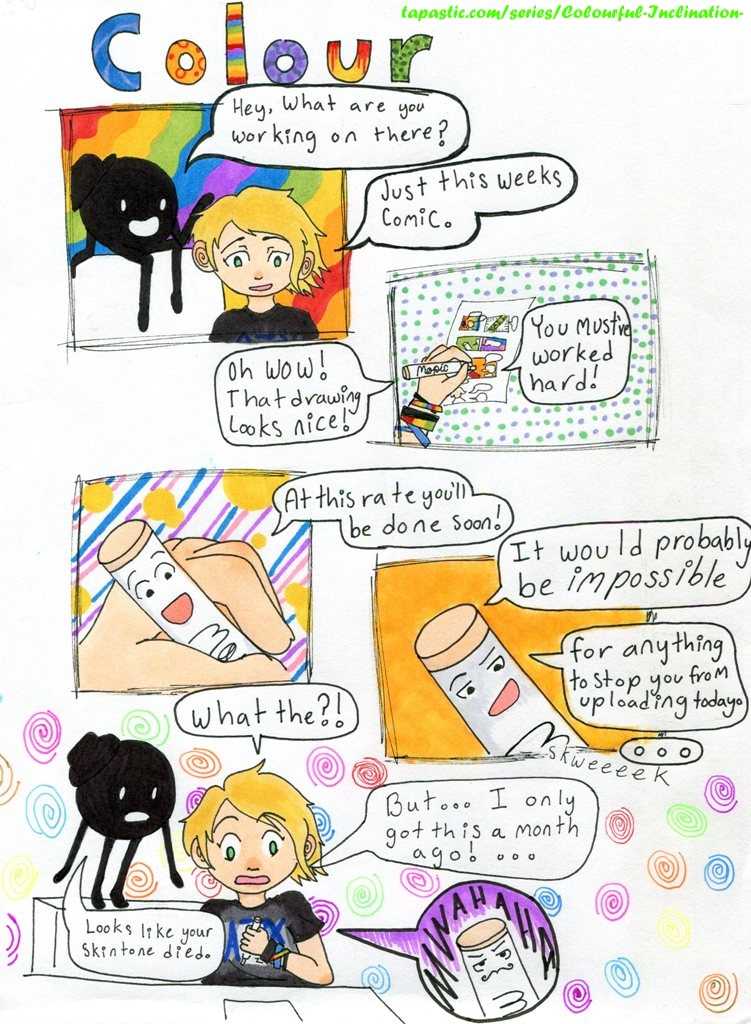 tapastic.com/series/Colourful-Inclination-
Colour
Hey, What are you
working on there?
Just this weeks
Comic.
You Must've
worked
hard!
Oh wow!
That drawing
Looks nice!
Mopic
At this rate you'll
be done soon!
It would probably
be impossible
for anything
to stop you from
uploading today.
skweeeek
...
What the?!
But... I only
got this a month
ago! ...
Looks like your
Skintone died.
MWAHAHA